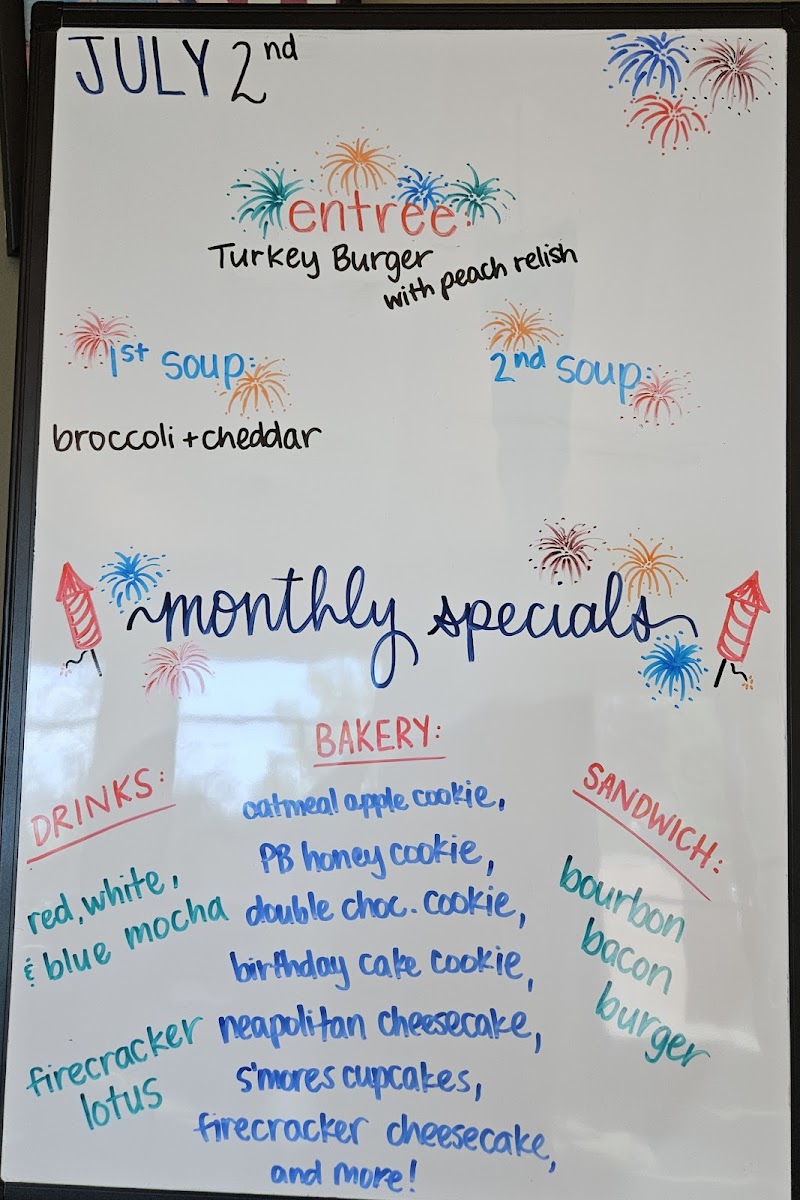 JULY 2nd
entree:
Turkey Burger
with peach relish
1st soup:
2nd soup:
broccoli + cheddar
monthly specials
BAKERY:
oatmeal apple cookie,
PB honey cookie,
double choc. cookie,
birthday cake cookie,
neapolitan cheesecake,
s'mores cupcakes,
firecracker cheesecake,
and more!
DRINKS:
red, white,
& blue mocha
firecracker
lotus
SANDWICH:
bourbon
bacon
burger